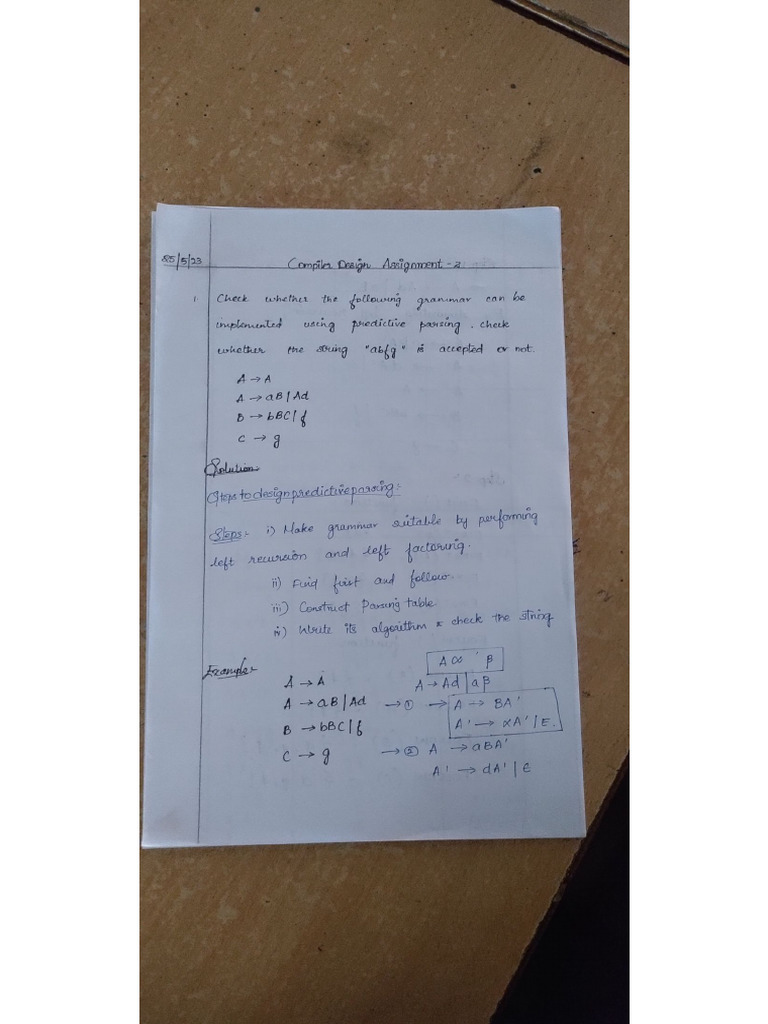 25/5/23
Compiler Design Assignment - 2
1. Check whether the following grammar can be
implemented using predictive parsing. check
whether the string "abfg" is accepted or not.
A → A
A → aB | Ad
B → bBC | f
C → g
Solution
Steps to design predictive parsing:-
Steps:- i) Make grammar suitable by performing
left recursion and left factoring.
ii) Find first and follow
iii) Construct Parsing table
iv) Write its algorithm & check the string
Example:-
Aα ' β
A → A
A → Ad | aβ
A → aB | Ad → ① → A → BA'
B → bBC | f
A' → αA' | E.
C → g → ② A → aBA'
A' → dA' | E